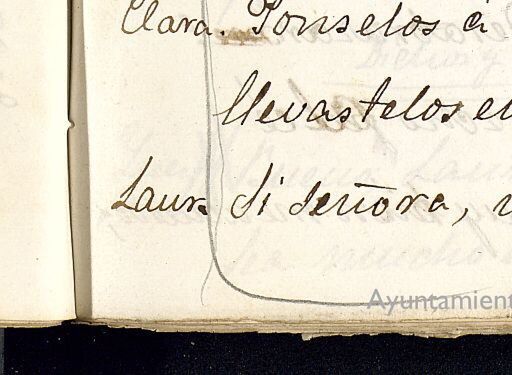 Clara. Ponselos á
llevastelos en
Laura Si señora,
Ayuntamient